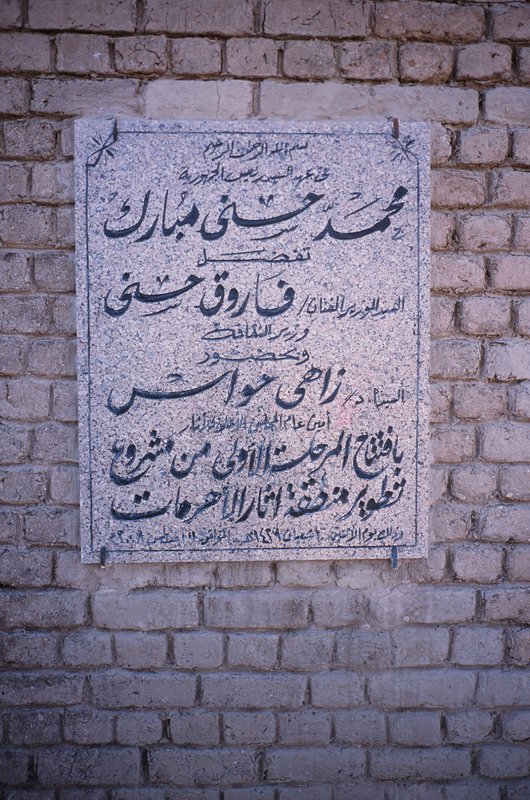 بسم الله الرحمن الرحيم
في عهد السيد رئيس الجمهورية
محمد حسنى مبارك
تفضل
السيد الوزير الفنان / فاروق حسنى
وزير الثقافة
وبحضور
السيد أ.د / زاهى حواس
أمين عام المجلس الأعلى للآثار
بإفتتاح المرحلة الأولى من مشروع
تطوير منطقة اثار الأهرمات
وذلك يوم الاثنين ١٠ شعبان ١٤٢٩هـ الموافق ١١ اغسطس ٢٠٠٨م